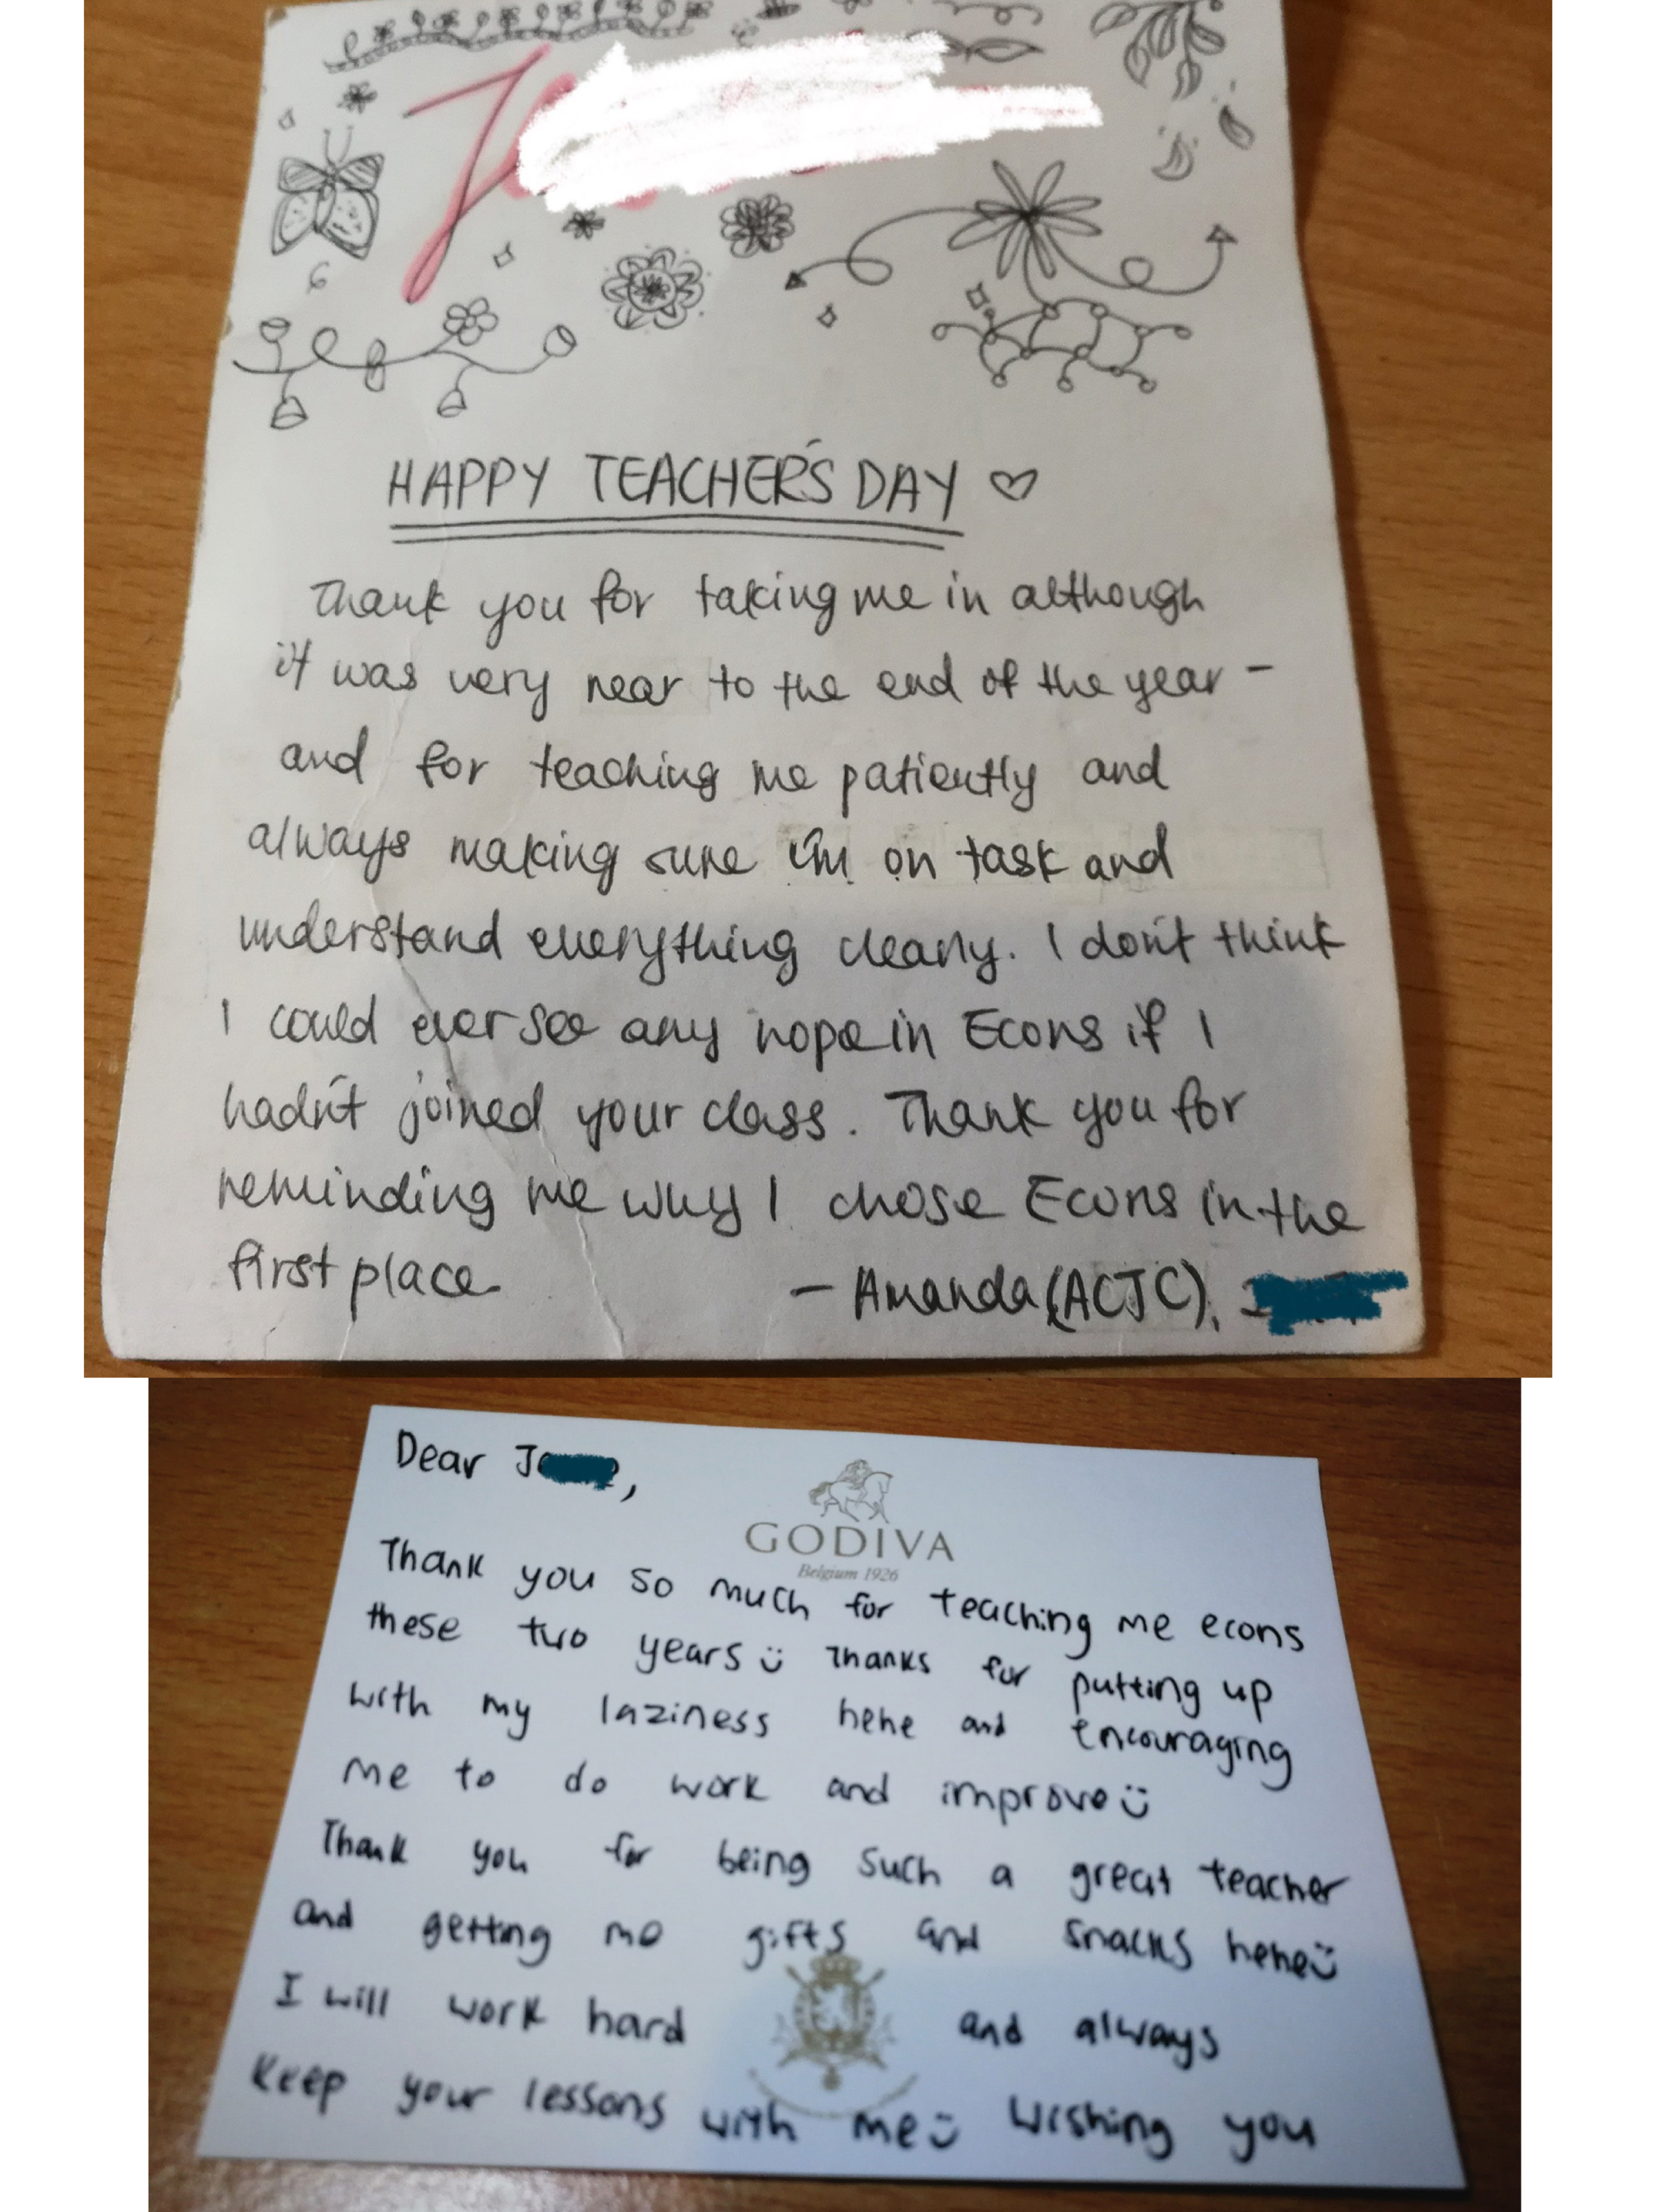 HAPPY TEACHER'S DAY ♡
Thank you for taking me in although
it was very near to the end of the year -
and for teaching me patiently and
always making sure i'm on task and
understand everything clearly. I don't think
I could ever see any hope in Econs if I
hadn't joined your class. Thank you for
reminding me why I chose Econs in the
first place
- Amanda (ACJC),
Dear J
GODIVA
Belgium 1926
Thank you so much for teaching me econs
these two years Thanks for putting up
with my laziness hehe and encouraging
me to do work and improve
Thank you for being such a great teacher
and getting me gifts and snacks hehe
I will work hard and always
keep your lessons with me Wishing you